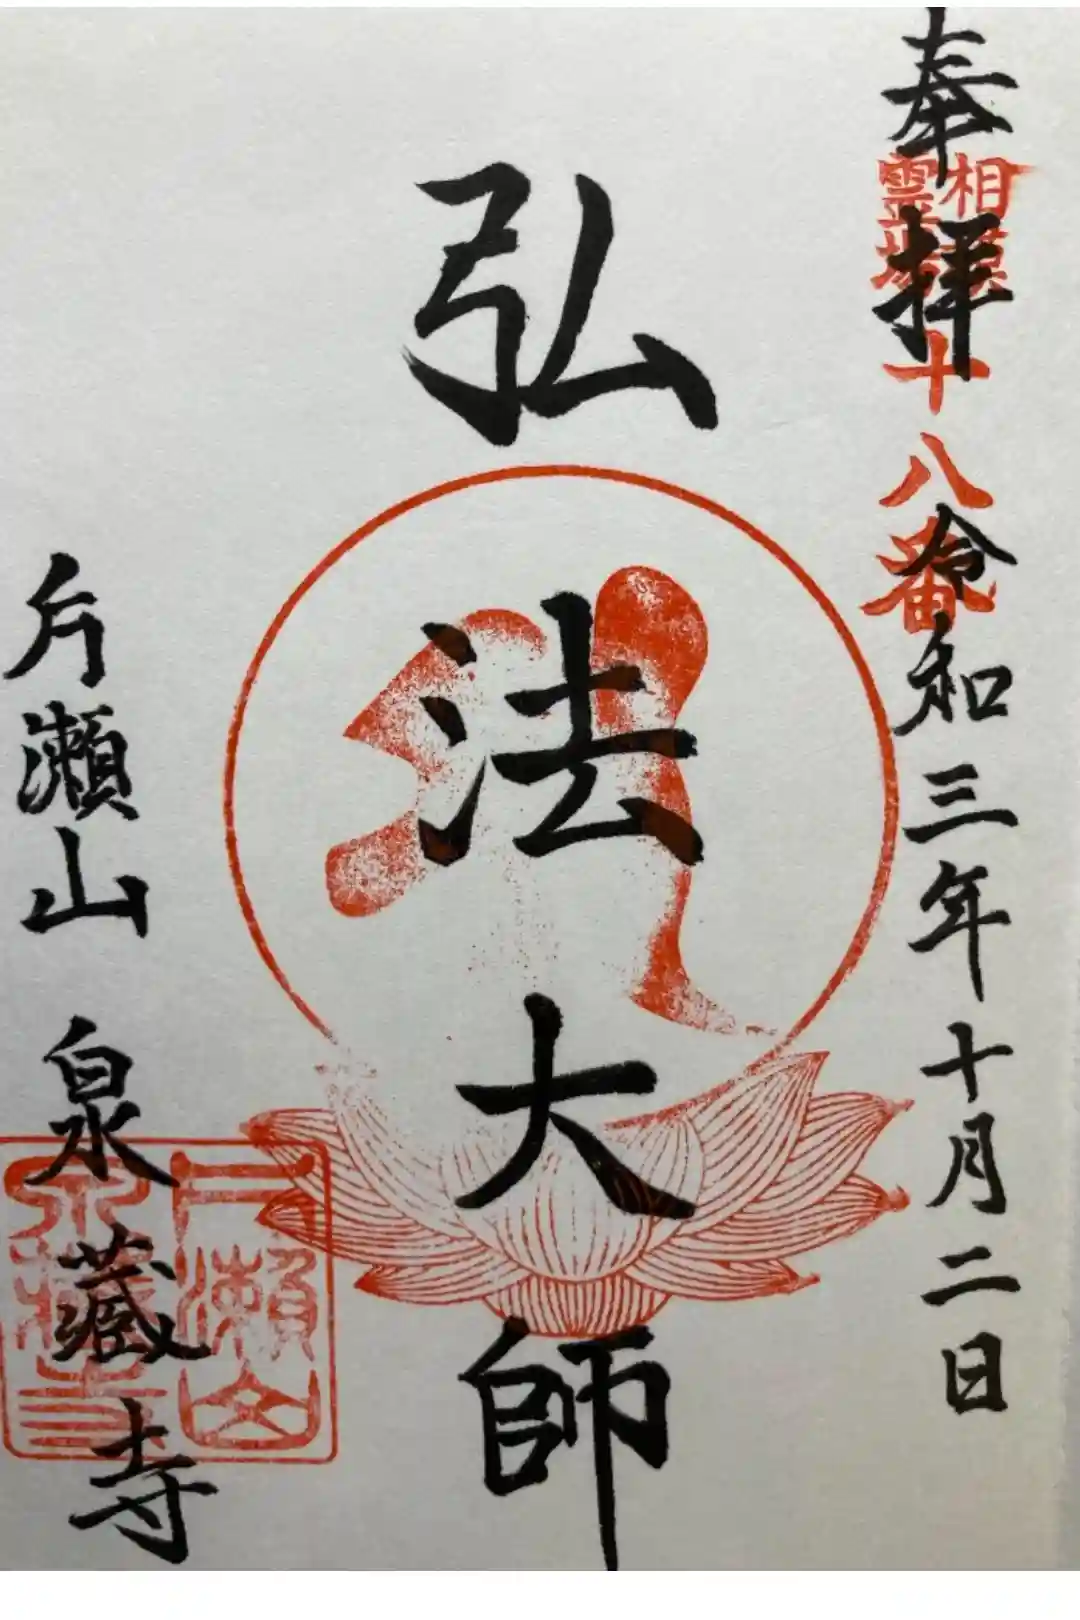 奉拝
相模
霊場
十八番
令和三年十月二日
弘法大師
片瀬山 泉蔵寺
片瀬山
泉蔵寺